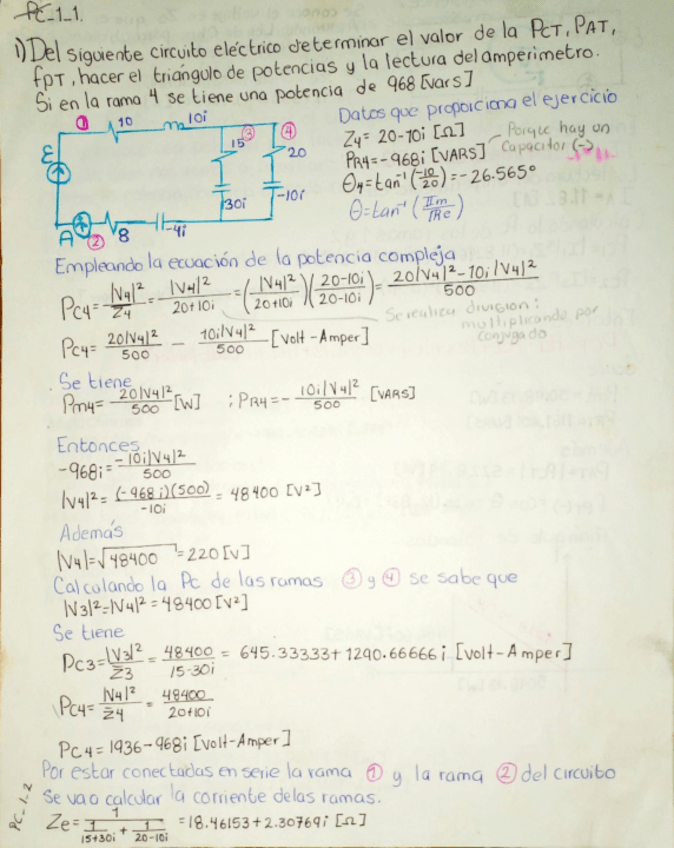 PC-1-1.
1) Del siguiente circuito eléctrico determinar el valor de la PCT, PAT,
fPT, hacer el triángulo de potencias y la lectura del amperimetro.
Si en la rama 4 se tiene una potencia de 968 [Vars]
Datos que proporciona el ejercicio
Z4= 20-10i [Ω]
PR4=-968i [VARS]
Porque hay un
Capacitor (-)
θ4=tan⁻¹(-10/20)=-26.565°
θ=tan⁻¹(Im/Re)
① 10 10i
ε 15 ③ ④ 20
30i -10i
A ② 8 -4i
Empleando la ecuación de la potencia compleja
PC4=|V4|²/Z̄4=|V4|²/20+10i=(|V4|²/20+10i)(20-10i/20-10i)=20|V4|²-10i|V4|²/500
Se realiza division:
multiplicando por
conjugado
PC4=20|V4|²/500 - 10i|V4|²/500 [Volt-Amper]
Se tiene
Pm4=20|V4|²/500 [W] ; PR4=-10i|V4|²/500 [VARS]
Entonces
-968i=-10i|V4|²/500
|V4|²=(-968i)(500)/-10i = 48400 [V²]
Además
|V4|=√48400 = 220 [V]
Calculando la Pc de las ramas ③ y ④ se sabe que
|V3|²=|V4|²=48400[V²]
Se tiene
PC3=|V3|²/Z̄3=48400/15-30i = 645.33333+1290.66666i [Volt-Amper]
PC4=|V4|²/Z̄4=48400/20+10i
PC4=1936-968i [Volt-Amper]
Por estar conectadas en serie la rama ① y la rama ② del circuito
se va a calcular la corriente de las ramas.
Ze=1/(1/15+30i + 1/20-10i) =18.46153+2.30769i [Ω]
PC-1-2